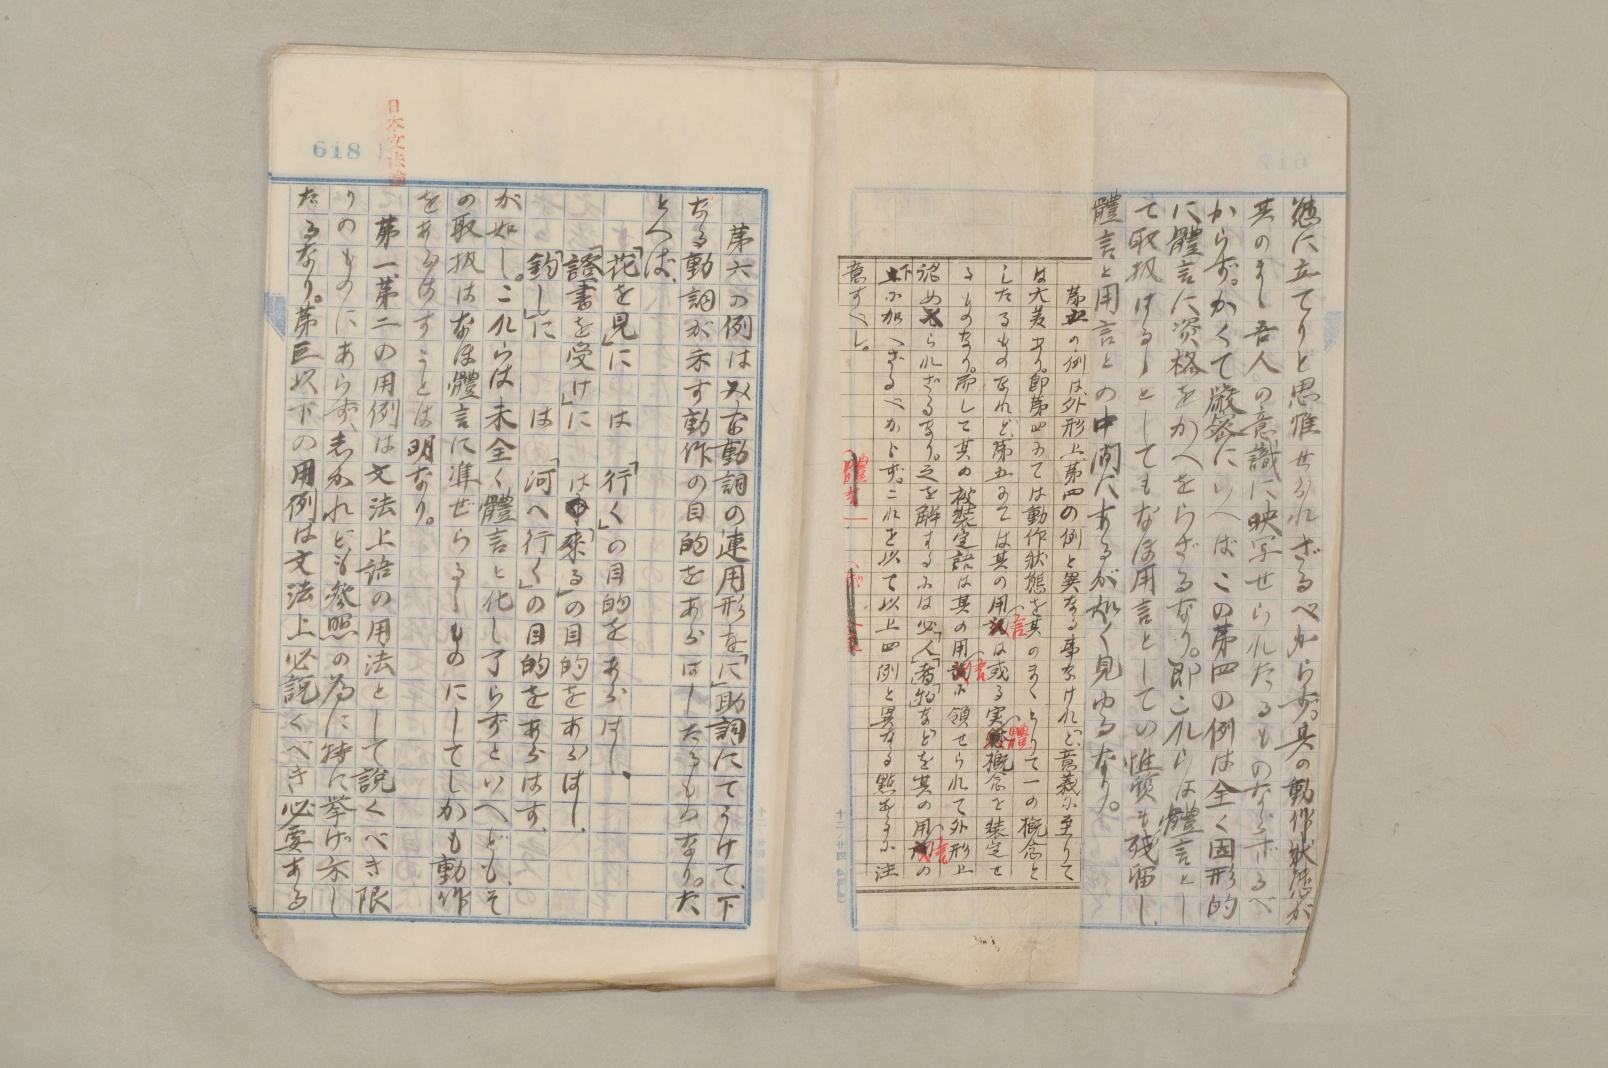 態に立てりと思惟せられざるべからず。其の動作状態が
其のまゝ吾人の意識に映写せられたるものならざるべ
からず。かくて厳密にいへばこの第四の例は全く固形的
に體言に資格をかへをらざるなり。即これらは體言とし
て取扱はるゝとしてもなほ用言としての性質を残留し
體言と用言との中間にあるが如く見ゆるなり。
第五の例は外形上第四の例と異なる事なけれど、意義に至りて
は大差あり。即第四にては動作状態を其のまゝとりて一の概念と
したるものなれど、第五にては其の用言は或る実體概念を装定せ
るものなり。而して其の被装定語は其の用言に領せられて外形上
認められざるなり。之を解するには必「人」「者」「物」などを其の用言の
下に加へざるべからず。これを以て以上四例と異なる點あるに注
意すべし。
618
日本文法論
第六の例はみな動詞の連用形を「に」助詞にてうけて、下
なる動詞が示す動作の目的をあらはしたるものなり。た
とへば、
「花を見」に は 「行く」の目的をあらはし、
「證書を受け」に は 「來る」の目的をあらはし、
「釣し」に は 「河へ行く」の目的をあらはす、
が如し。これらは未全く體言と化し了らずといへども、そ
の取扱はなほ體言に準ぜらるゝものにしてしかも動作
をあらはすことは明なり。
第一、第二の用例は文法上語の用法として説くべき限
りのものにあらず、しかれども參照の為に特に挙げ示し
たるなり。第三以下の用例は文法上必説くべき必要ある